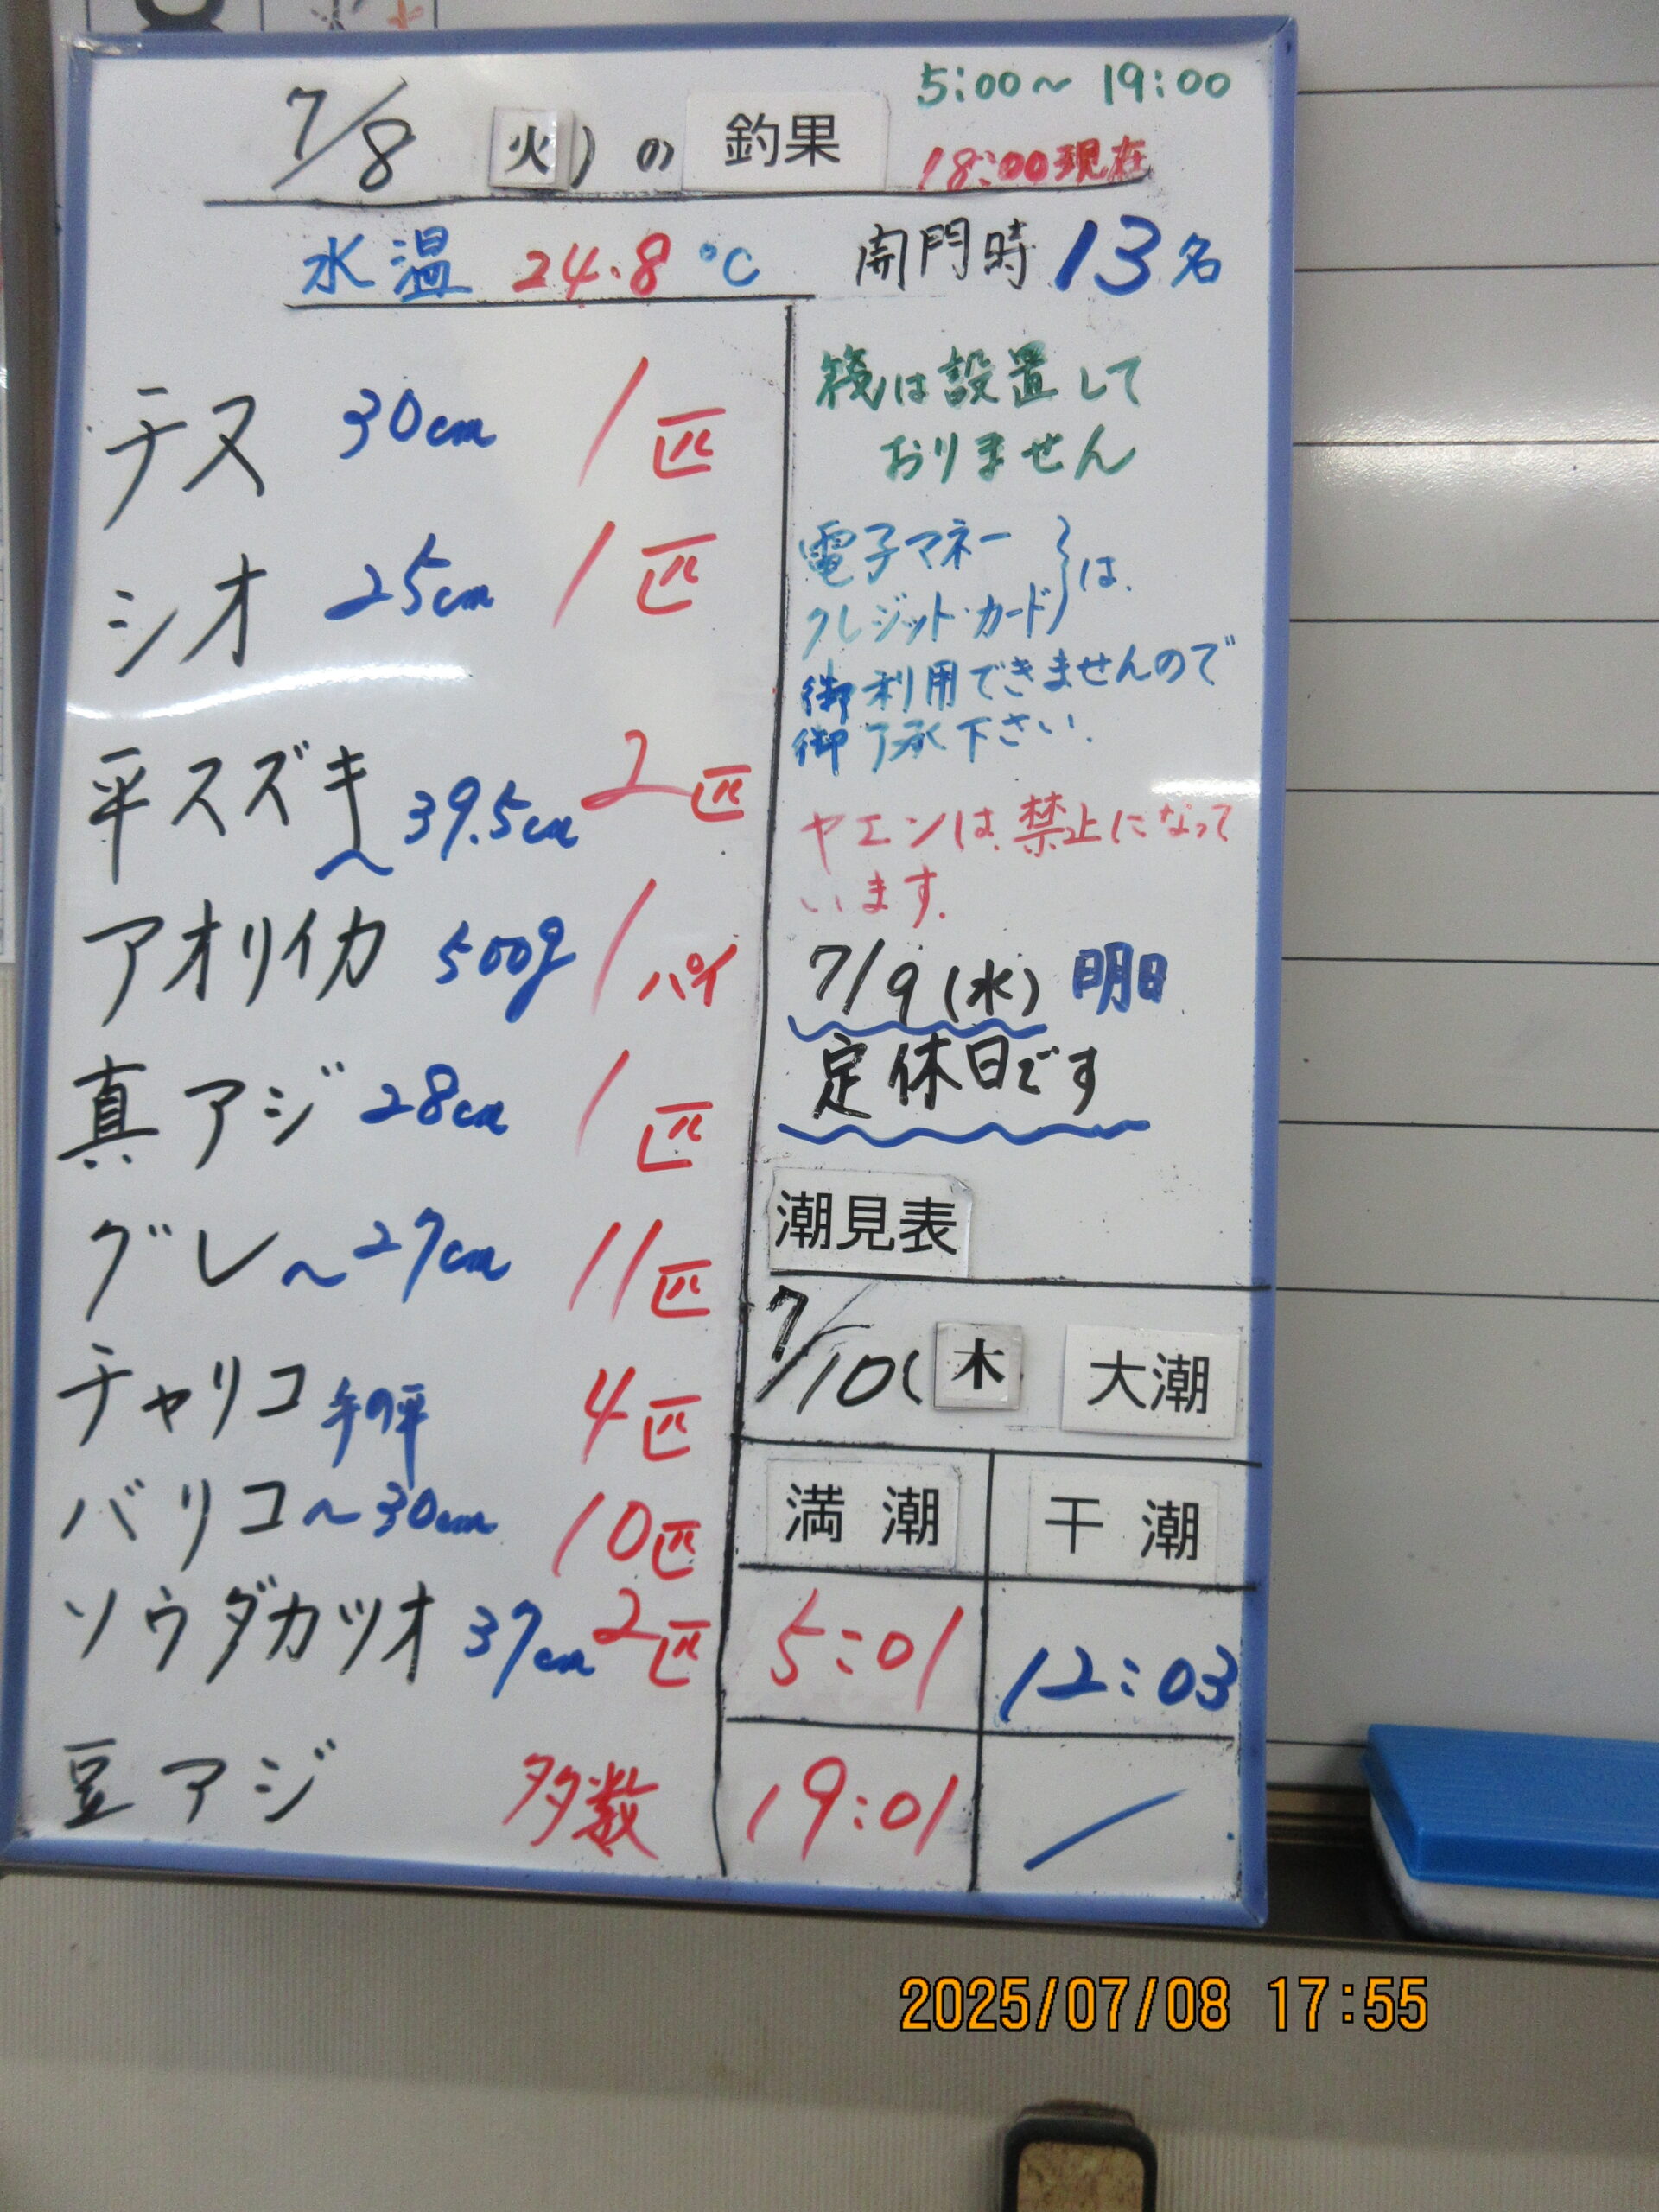 7/8 火) の 釣果
5:00~19:00
18:00現在
水温 24.8℃
開門時 13名
チヌ 30cm 1匹
シオ 25cm 1匹
平スズキ ~39.5cm 2匹
アオリイカ 500g 1パイ
真アジ 28cm 1匹
グレ ~27cm 11匹
チャリコ 手の平 4匹
バリコ ~30cm 10匹
ソウダカツオ 37cm 2匹
豆アジ 多数
筏は設置して
おりません
電子マネー
クレジット・カード}は、
御利用できませんので
御了承下さい.
ヤエンは禁止になって
います.
7/9(水) 明日
定休日です
潮見表
7/10( 木 大潮
満潮 干潮
5:01 12:03
19:01 /
2025/07/08 17:55